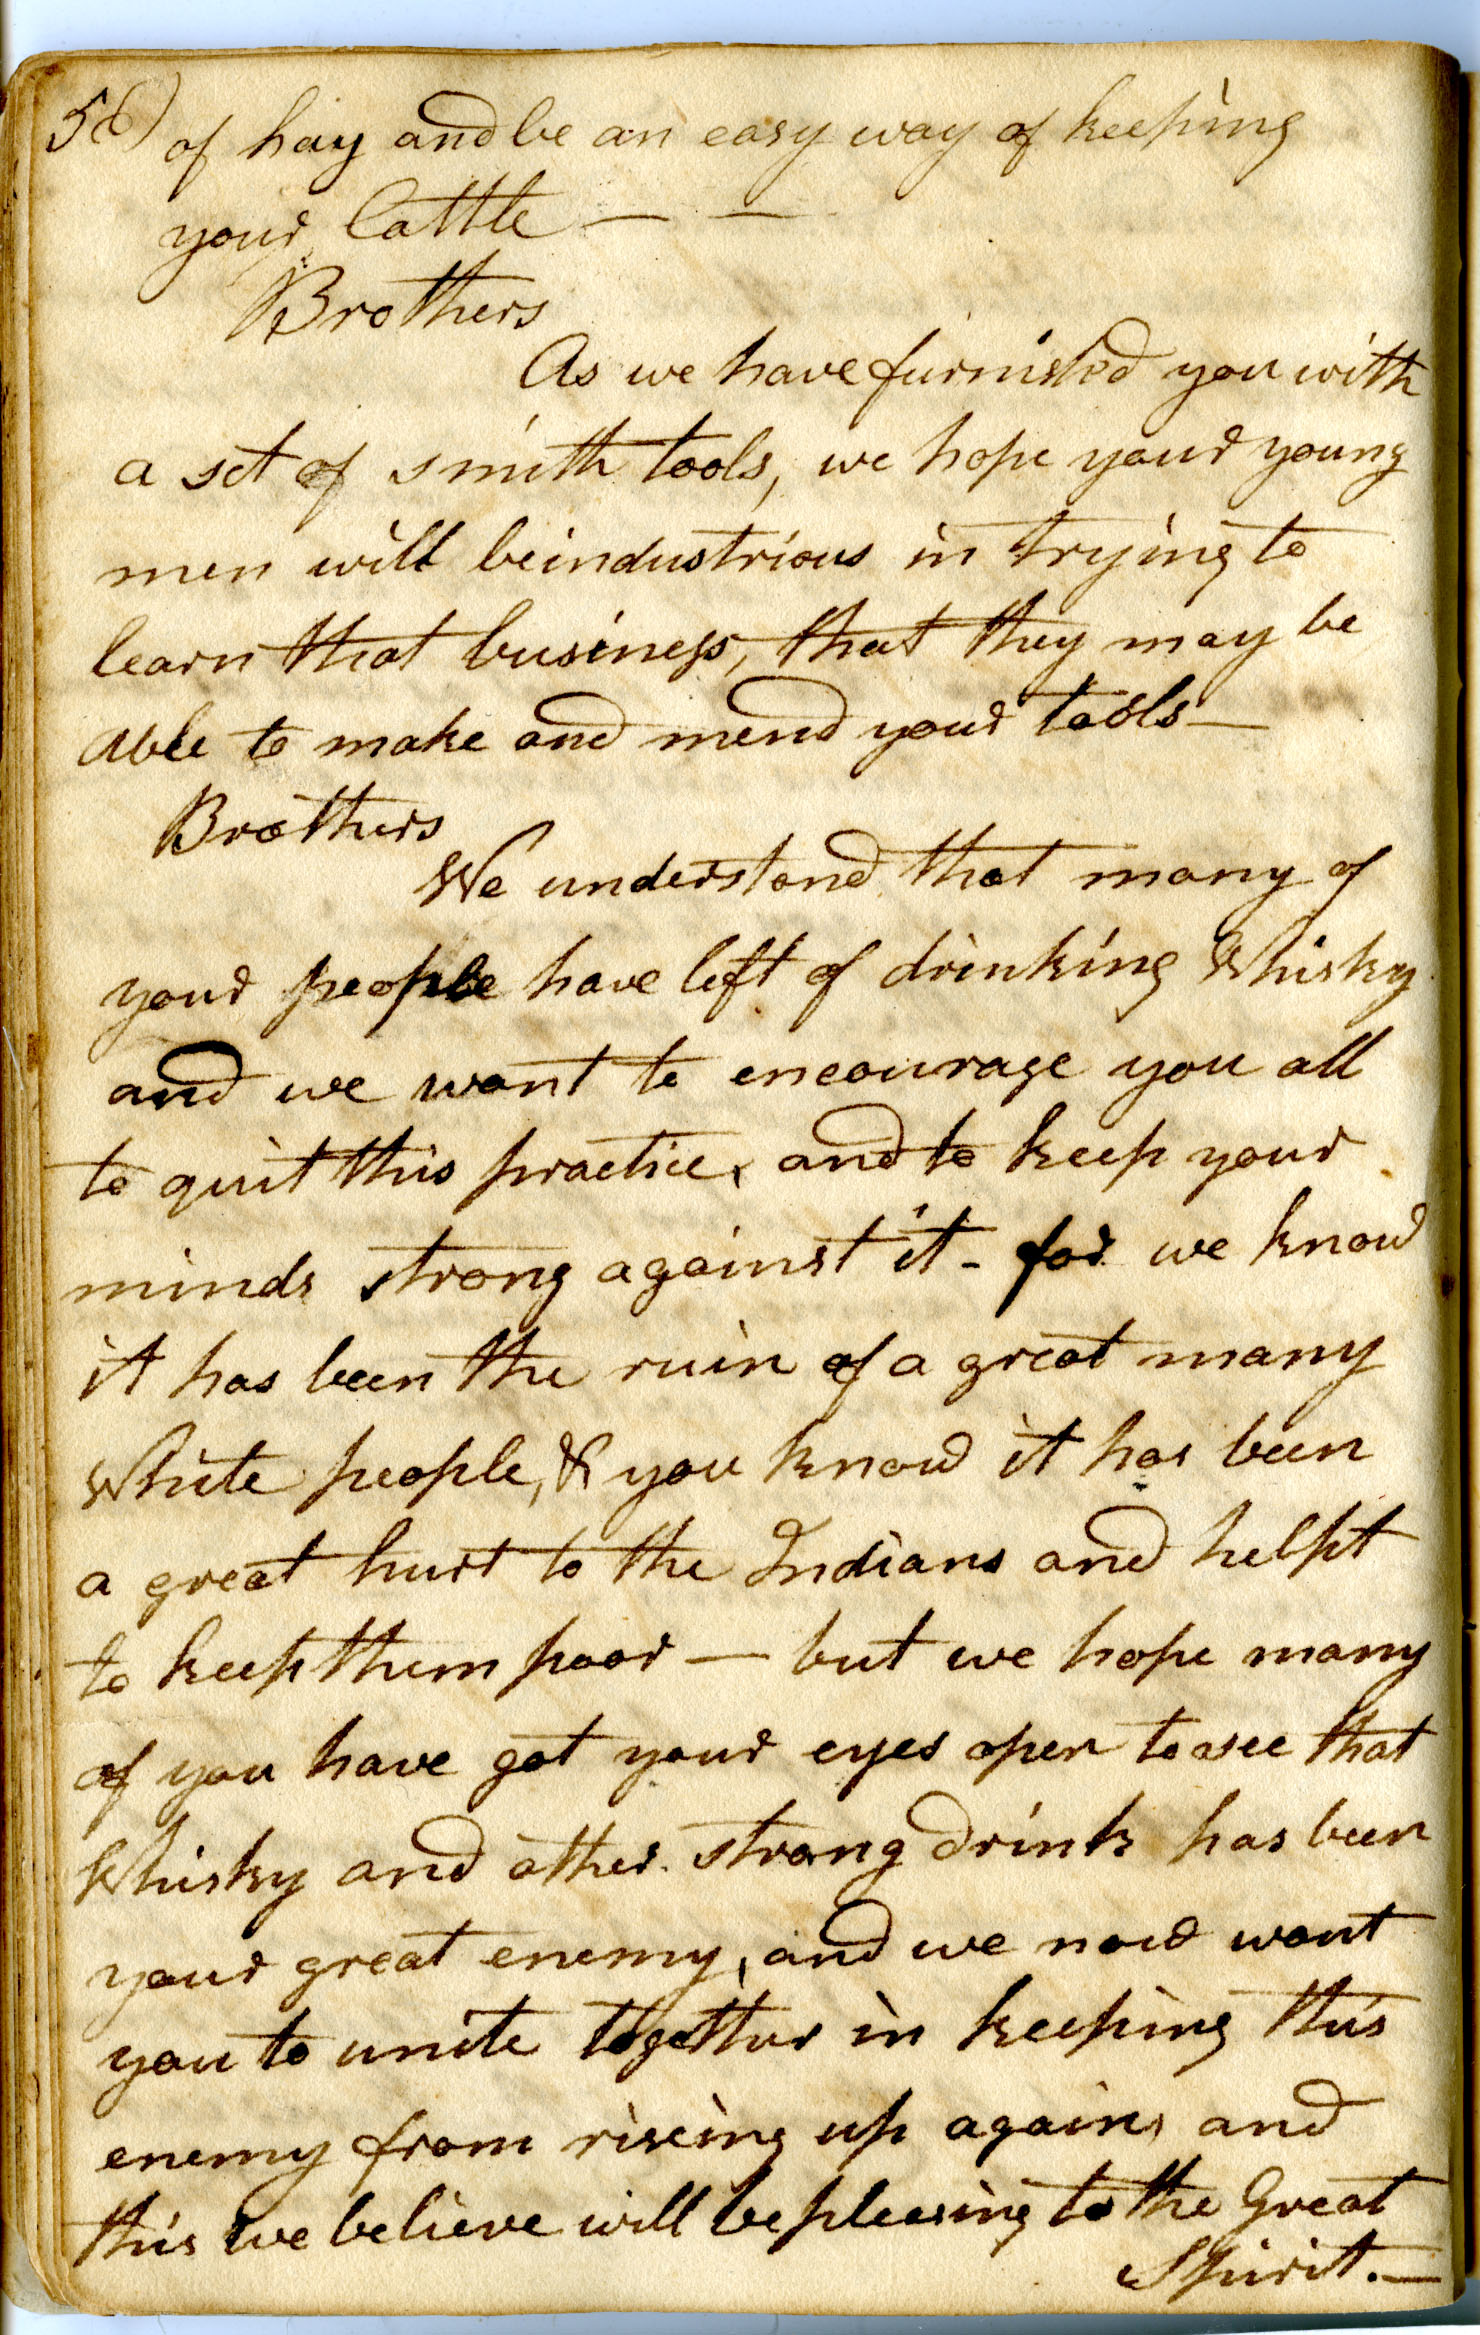 56) of hay and be an easy way of keeping
your Cattle — —
Brothers
As we have furnished you with
a set of smith tools, we hope your young
men will be industrious in trying to
learn that business, that they may be
able to make and mend your tools —
Brothers
We understand that many of
your people have left of drinking Whisky
and we want to encourage you all
to quit this practice, and to keep your
minds strong against it - for we know
it has been the ruin of a great many
White people, & you know it has been
a great hurt to the Indians and helpt
to keep them poor — but we hope many
of you have got your eyes open to see that
Whisky and other strong drink has been
your great enemy, and we now want
you to unite together in keeping this
enemy from riseing up again, and
this we believe will be pleasing to the Great
Spirit. —